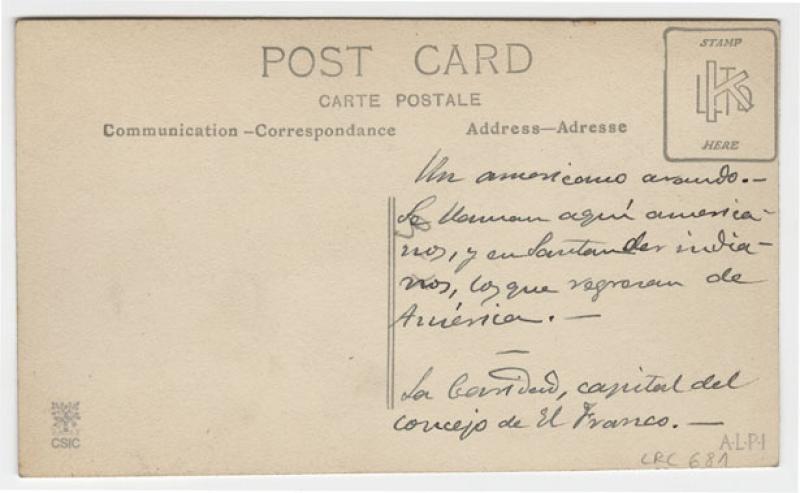 POST CARD
CARTE POSTALE
Communication – Correspondance
Address — Adresse
STAMP
LKTD
HERE
Un americano arando. —
Se llaman aquí america-
nos, y en Santander india-
nos, los que regresan de
América. —
—
La Caridad, capital del
concejo de El Franco. —
CSIC
A·L·P·I
LRC 681